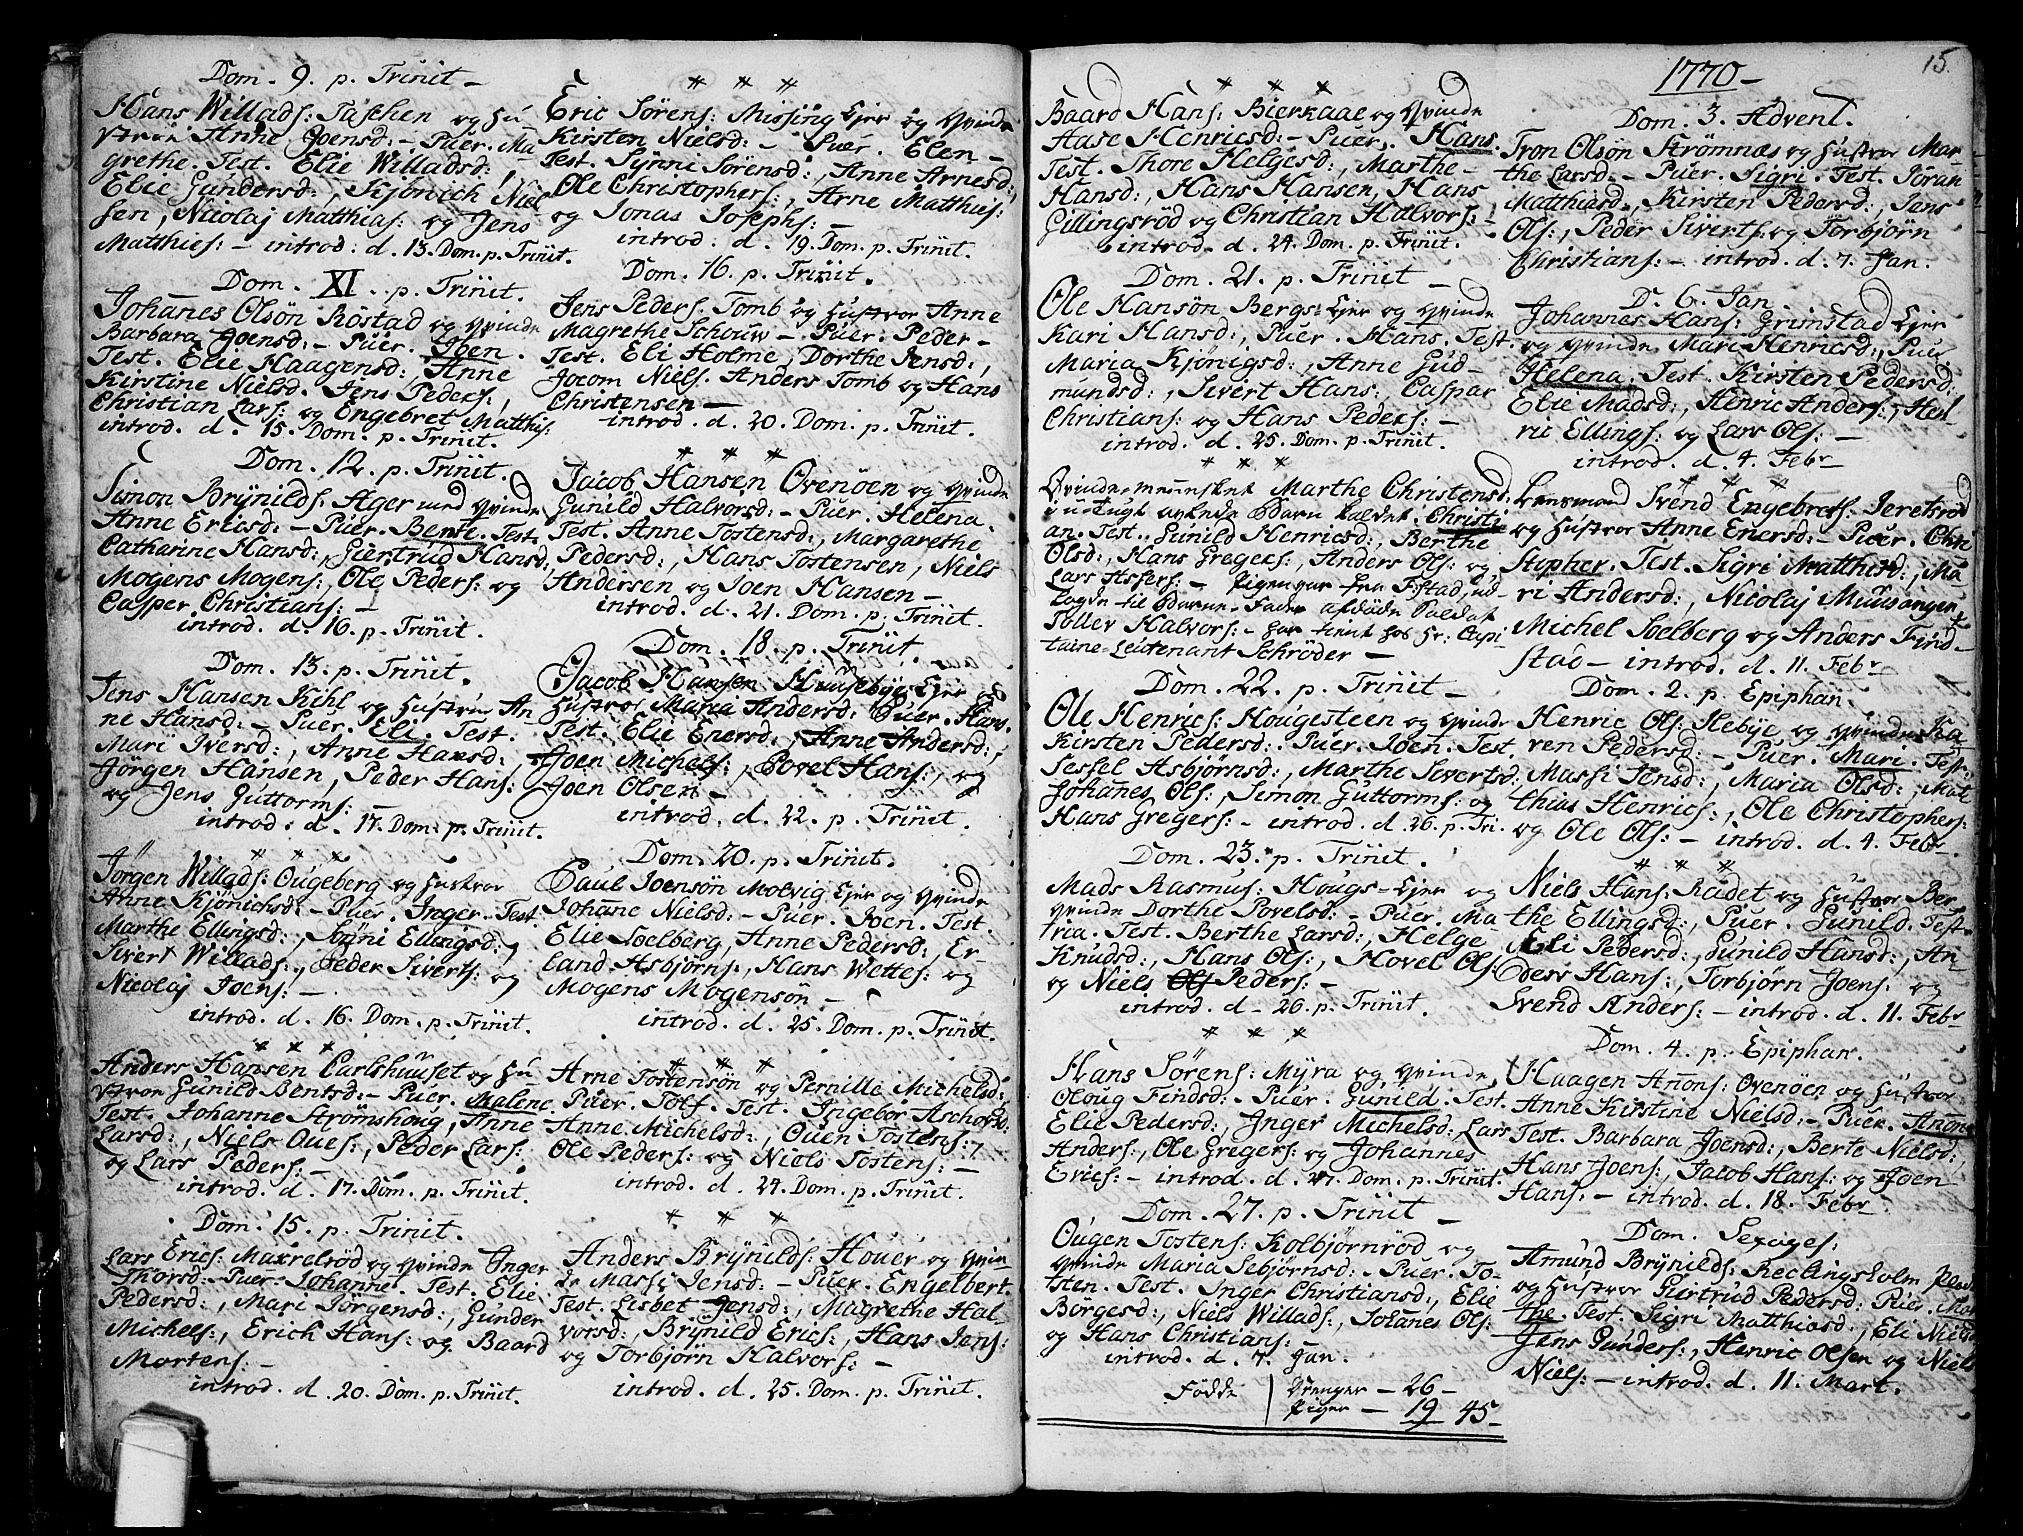 Dom. 9. p. Trinit –
Hans Willads: Taschen og hu
strue Anne Joensd: – Puer. Ma
grethe. Test. Elie Willadsd:
Elie Gundersd:, Siebnich Niel
sen, Nicolaj Matthias: og Jens
Matthies: – introd: d. 13. Dom. p. Trinit.
Dom. XI. p. Trinit.
Johannes Olsön Rostad og Qvinde
Barbara Joensd: – Puer. Joen.
Test. Elie Haagensd:, Anne
Kirstine Nielsd. Jens Peders:,
Christian Lars: og Engebret Matthis:
introd. d. 15. Dom. p. Trinit.
Dom. 12. p. Trinit.
Simon Brynilds: Ager med Qvinde
Anne Ericsd: – Puer. Bente. Test.
Catharine Hansd:, Giertrud Hansd:,
Mogens Mogens:, Ole Peders: og
Casper Christians: –
introd. d. 16. p. Trinit.
Dom. 13. p. Trinit.
Jens Hansen Kihl og hustrue An
ne Hansd: – Puer. Eli. Test.
Mari Iversd:, Anne Hansd:,
Jörgen Hansen, Peder Hans:
og Jens Guttorms: –
introd. d. 17. Dom. p. Trinit.
* * *
Jörgen Willads: Ougeberg og hustroe
Anne Kjönichsd: – Puer. Inger. Test.
Marthe Ellingsd:, Synni Ellingsd:,
Sivert Willads:, Peder Siverts: og
Nicolaj Joens: –
introd. d. 16. Dom. p. Trinit.
* * *
Anders Hansen Carlshuuset og hu
stroe Gunild Bentsd: – Puer. Malene
Test. Johanne Strömshoug, Anne
Larsd:, Niels Oues:, Peder Lars:
og Lars Peders: –
introd. d. 17. Dom. p. Trinit.
Dom. 15. p. Trinit.
Lars Erics: Maxrelröd og Qvinde Inger
Thorsd: – Puer. Johanne. Test. Elie
Pedersd:, Mari Jörgensd:, Gunder
Michels:, Erich Hans: og Baard
Mortens: –
introd. d. 20. Dom. p. Trinit.
* * *
Eric Sörens: Missing Ejer og Qvinde
Kirsten Nielsd: – Puer. Elen –
Test. Synni Sörensd:, Anne Arnesd:,
Ole Christophers:, Arne Matthies:
og Jonas Josephs: –
introd: d. 19. Dom. p. Trinit.
Dom. 16. p. Trinit.
Jens Peders. Tomb og hustroe Anne
Magrethe Schouw – Puer. Peder –
Test. Eli Holme, Dorthe Jensd:,
Jocom Niels. Anders Tomb og Hans
Christensen –
introd. d. 20. Dom. p. Trinit.
* * *
Jacob Hansen Ovenöen og Qvinde
Gunild Halvorsd: – Puer. Helena.
Test. Anne Tostensd:, Margarethe
Pedersd:, Hans Tostensen, Niels
Andersen og Joen Hansen –
introd. d. 21. Dom. p. Trinit.
Dom. 18. p. Trinit.
Jacob Hansen Huusebye Ejer
hustroe Maria Andersd: Puer. Hans
Test. Elie Enersd:, Anne Andersd:,
Joen Michels:, Povel Hans:, og
Joen Olsen –
introd. d. 22. p. Trinit.
Dom. 20. p. Trinit.
Paul Joensön Molvig Ejer og Qvinde
Johanne Nielsd: – Puer. Joen. Test.
Elie Soelberg, Anne Pedersd:, Er-
land Asbjörns:, Hans Wettes: og
Mogens Mogensön –
introd. d. 25. Dom. p. Trinit.
* * *
Arne Tostensön og Pernille Michelsd:
Puer. Tolf. Test. Ingebor Aschous:
Anne Michelsd:, Ouen Tostens:,
Ole Peders: og Niels Tostens: –
introd. d. 24. Dom. p. Trinit.
* * *
Anders Brynilds: Houer og Qvin
de Massi Jensd: – Puer. Engelbert.
Test. Lisbet Jensd:, Magrethe Hal-
vorsd:, Brynild Erics:, Hans Jens:
og Torbjörn Halvors: –
introd. d. 25. Dom. p. Trinit.
* * *
Baard Hans: Bierkaae og Qvinde
Aase Henricsd: – Puer. Hans.
Test. Thore Helgesd:, Marthe
Hansd:, Hans Hansen, Hans
Gillingsröd og Christian Halvors: –
introd. d. 24. Dom. p. Trinit.
Dom. 21. p. Trinit
Ole Hansön Bergs: Ejer og Qvinde
Kari Hansd:, Puer. Hans. Test.
Maria Kjönigsd:, Anne Gud-
mundsd:, Sivert Hans:, Caspar
Christians: og Hans Peders: –
introd. d. 25. Dom. p. Trinit.
* * *
Qvinde-mennisket Marthe Christensd:
Barn kaldet Christi
an. Test. Gunild Henricsd:, Berthe
Olsd:, Hans Gregers:, Anders Ols: og
Lars Asfers: – Pigen var fra Fistad, ud-
lagde til Barne-Fader afdöde Soldat
Toller Halvors: – har tient hos Hr: Capi
taine-Leutenant Schröder –
Dom. 22. p. Trinit –
Ole Henrics: Hougesteen og Qvinde
Kirsten Pedersd: Puer. Joen. Test
Sessel Asbjörnsd:, Marthe Sivertsd:,
Johanes Ols:, Simon Guttorms: og
Hans Gregers: – introd. d. 26. p. Tri.
Dom. 23. p. Trinit.
Mads Rasmus: Hougs – Ejer og
Qvinde Dorthe Povelsd: – Puer. Ma
tria. Test. Berthe Larsd:, Helge
Knudsd:, Hans Ols:, Hovel Ols:
og Niels Ols Peders: –
introd. d – 26. p. Trinit.
* * *
Hans Sörens: Myra og Qvinde,
Oloug Findsd: – Puer. Gunild. Test.
Elie Pedersd:, Inger Michelsd: Lars
Anders:, Ole Gregers: og Johannes
Erics: – introd. d. 27. Dom. p. Trinit.
Dom. 27. p. Trinit –
Ougen Tostens: Kolbjörnröd og
Qvinde Maria Sebjörnsd: – Puer. To-
sten. Test. Inger Christiansd:, Elie
Borgesd:, Niels Willads:, Johanes Ols:
og Hans Christians: –
introd. d. 7. Jan.
Födde | Drenger – 26 –
Piger – 19 45 –
15.
1770 –
Dom. 3. Advent.
Tron Olsön Strömnæs og hustroe Mar-
the Larsd: – Puer. Sigri. Test. Joran
Matthiasd., Kirsten Pedersd:, Jens
Ols:, Peder Siverts: og Torbjörn
Christians: – introd. d. 7. Jan.
D. 6. Jan.
Johannes Hans: Grimstad Ejer
og Qvinde Mari Henricsd:, Puer.
Helena. Test. Kirsten Pedersd:
Elie Madsd:, Henric Anders:, Hen-
ric Ellings: og Lars Ols: –
introd. d. 4. Febr
* * *
Lensmand Svend Engebrets: Jeretsröd
og hustroe Anne Enersd: – Puer. Chri
stopher. Test. Sigri Matthisd:, Ma
ri Andersd:, Nicolaj Muusanger,
Michel Soelberg og Anders Find-
stad – introd. d. 11. Febr
Dom. 2. p. Epiphan.
Henric Ols: Hebye og Qvinde Ka
ren Pedersd: – Puer. Mari. Test.
Massi Jensd:, Maria Olsd:, Mat
thias Henrics:, Ole Christophers:
og Ole Ols: – introd. d. 4. Febr.
* * *
Niels Hans: Radet og hustroe Ber-
the Ellingsd:, Puer. Gunild. Test.
Eli Pedersd:, Gunild Hansd:, An-
ders Hans:, Torbjörn Joens: og
Svend Anders: – introd. d. 11. Febr
Dom. 4. p. Epiphan.
Haagen Anons: Ovenöen og hustroe
Anne Kirstine Nielsd: – Puer. Anone
Test. Barbara Joensd:, Berte Nielsd:,
Hans Joens:, Jacob Hans: og Joen
Hans: – introd. d. 18. Febr
Dom. Sexages:
Amund Brynilds: Reclingsholm
og hustroe Giertrud Pedersd: Puer. Mar
the. Test. Sigri Matthiasd:, Eli Nielsd
Jens Gunders:, Henric Olsen og Niels
Niels: – introd. d. 11. Mart.